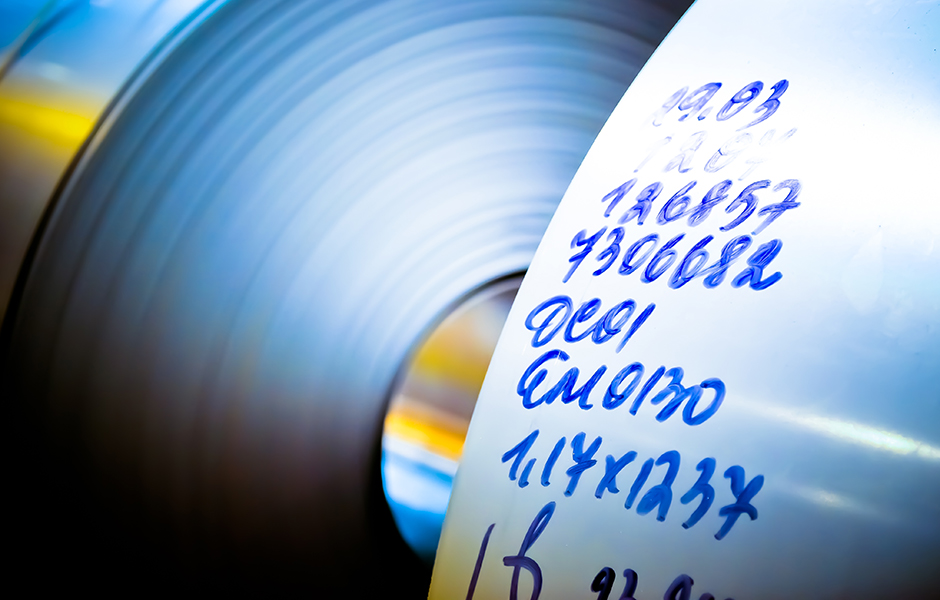 19.03
126857
7306682
DC01
GM0130
1,17x1237